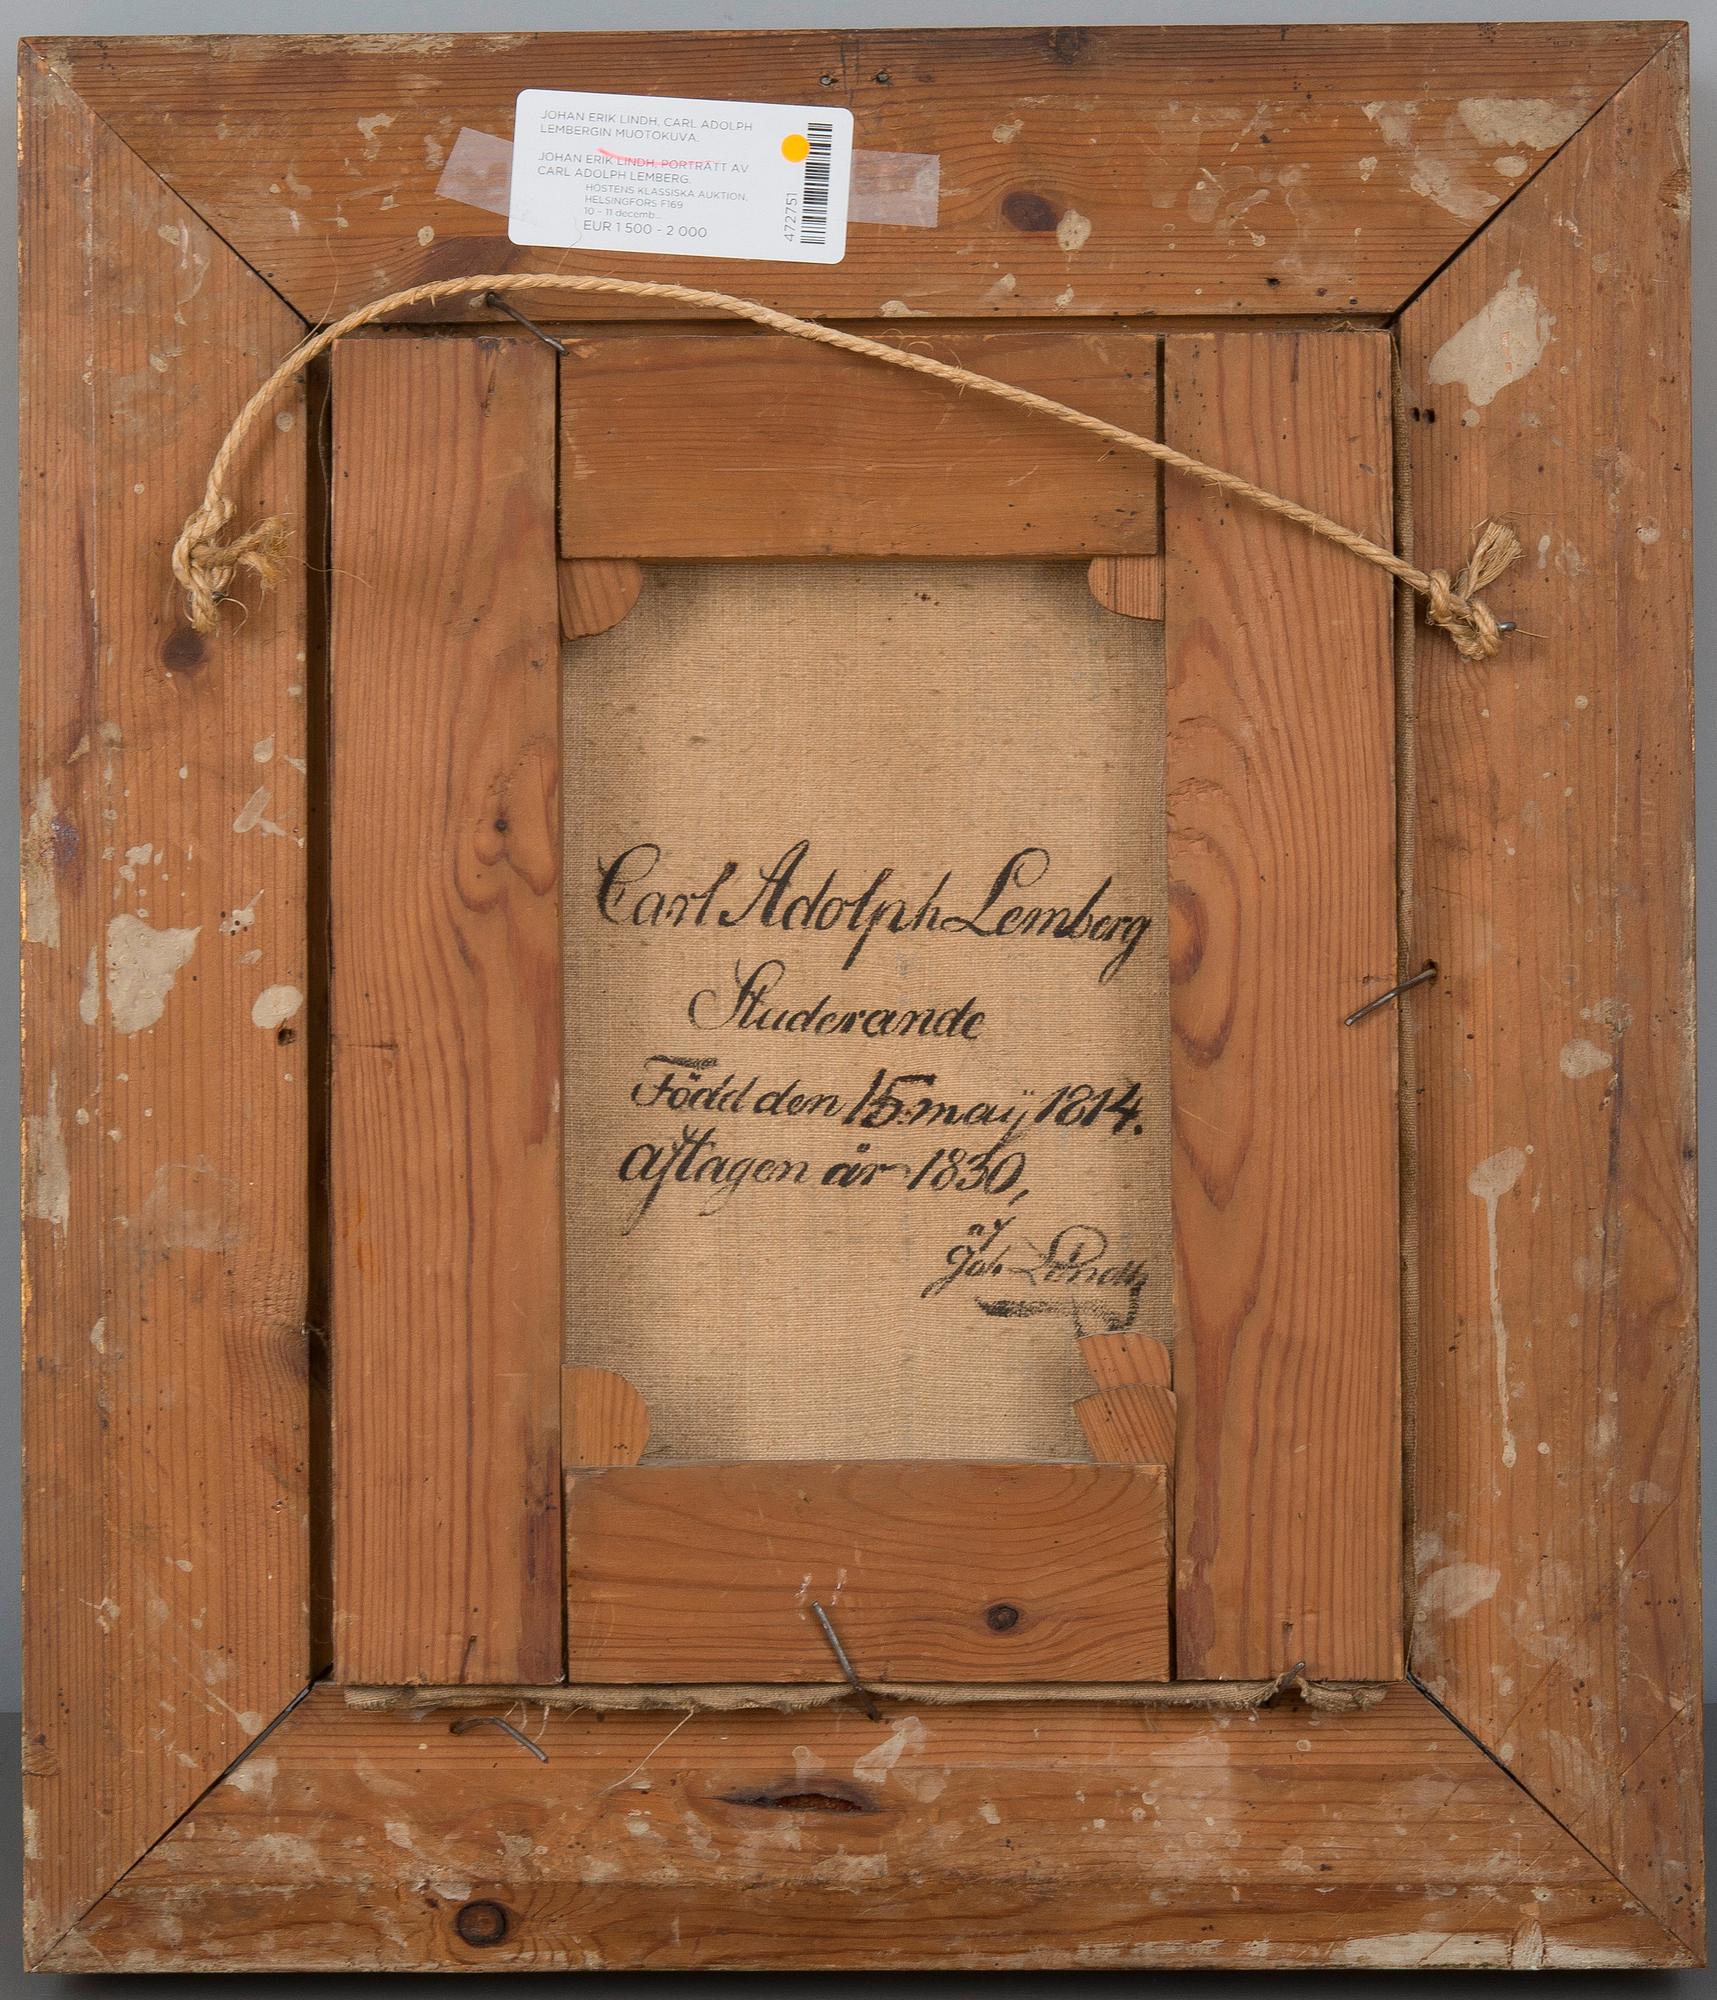 JOHAN ERIK LINDH, CARL ADOLPH
LEMBERGIN MUOTOKUVA.
JOHAN ERIK LINDH, PORTRÄTT AV
CARL ADOLPH LEMBERG.
HÖSTENS KLASSISKA AUKTION,
HELSINGFORS F169
10 - 11 decemb...
EUR 1 500 - 2 000
472751
Carl Adolph Lemberg
Studerande
Född den 15 maÿ 1814.
aftagen år 1830,
af
Joh. Lindh